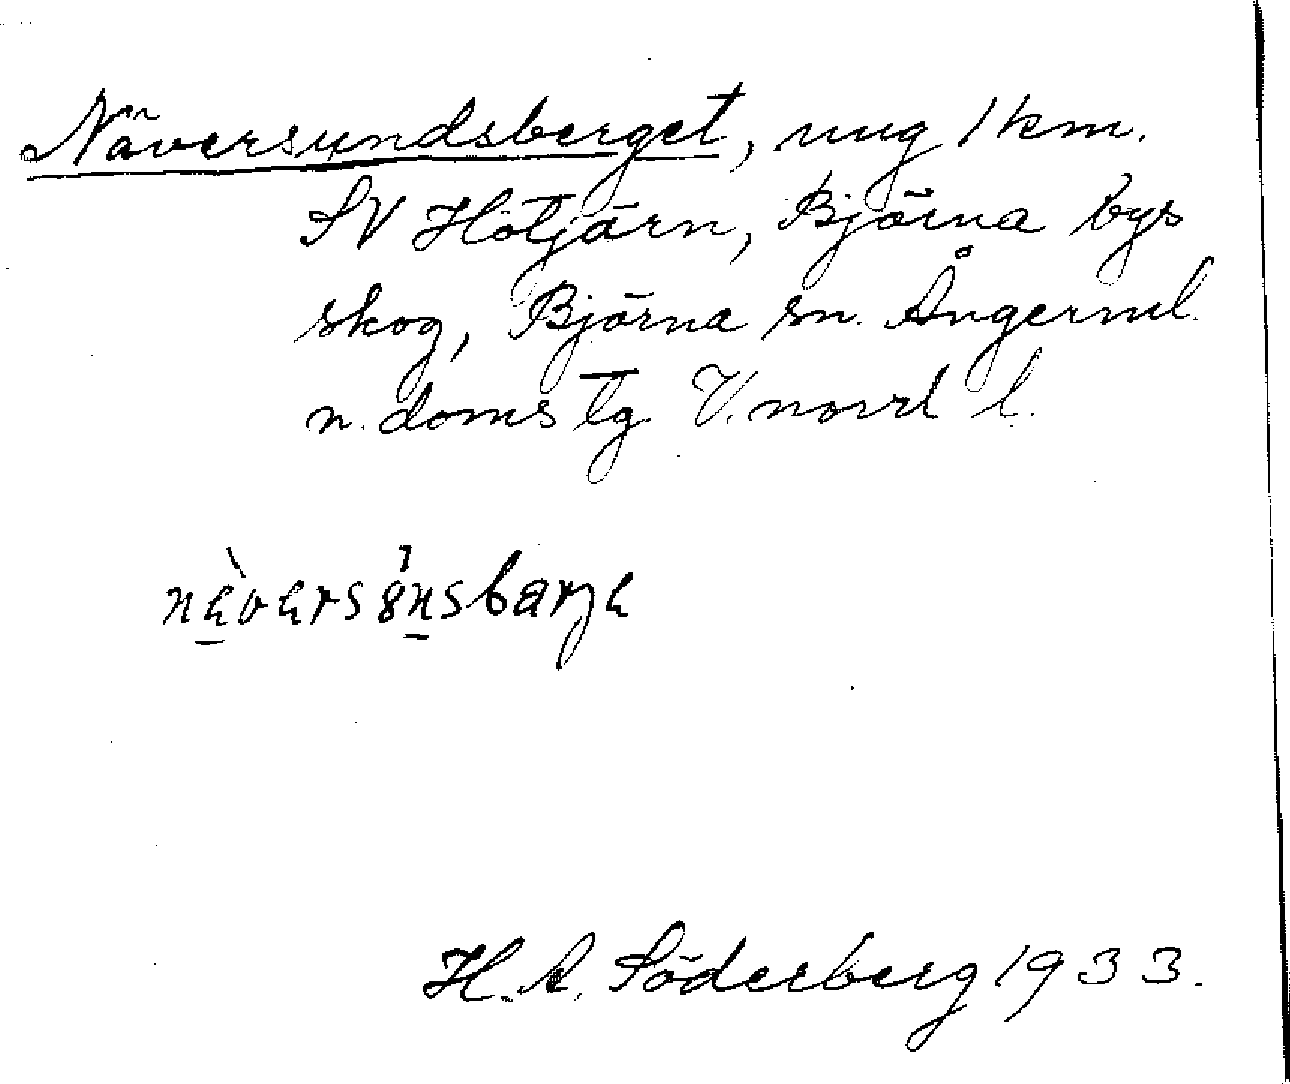 Näversundsberget, ung 1 km.
SV Hötjärn, Björna bys
skog, Björna sn. Ångerml.
n. doms tg V. norrl l.
nävärsönsbärjä
H. A. Söderberg 1933.